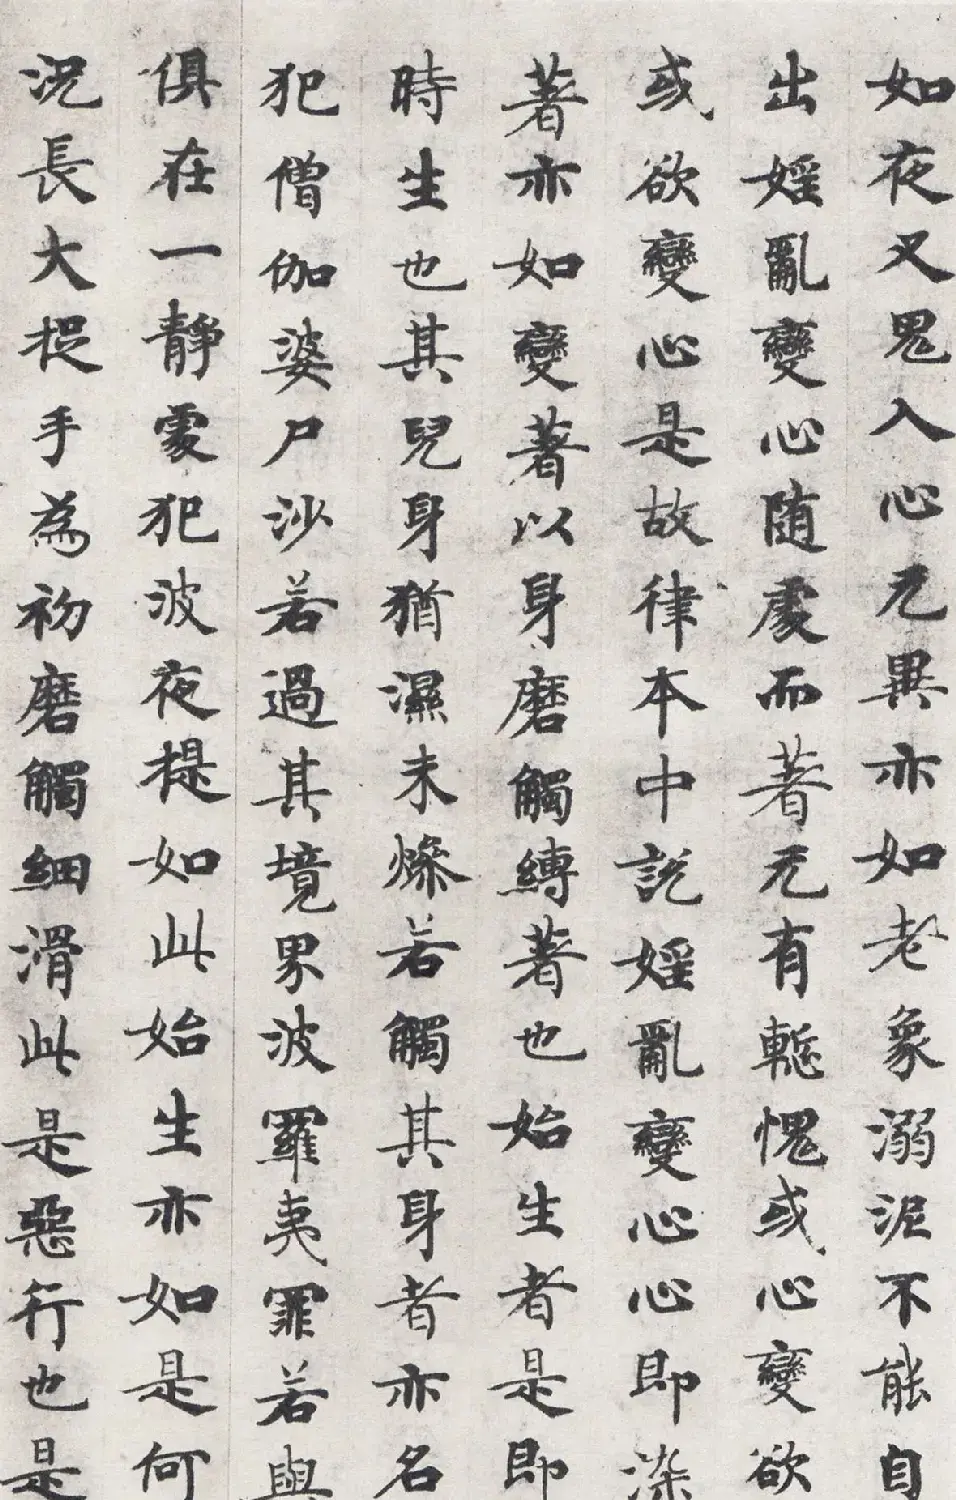 如夜叉鬼入心无異亦如老象溺泥不能自
出婬亂變心隨處而著无有慚愧或心變欲
或欲變心是故律本中說婬亂變心心即染
著亦如變著以身磨觸縛著也始生者是即
時生也其兒身猶濕未燥若觸其身者亦名
犯僧伽婆尸沙若過其境界波羅夷罪若與
俱在一靜處犯波夜提如此始生亦如是何
況長大捉手為初磨觸細滑此是惡行也是